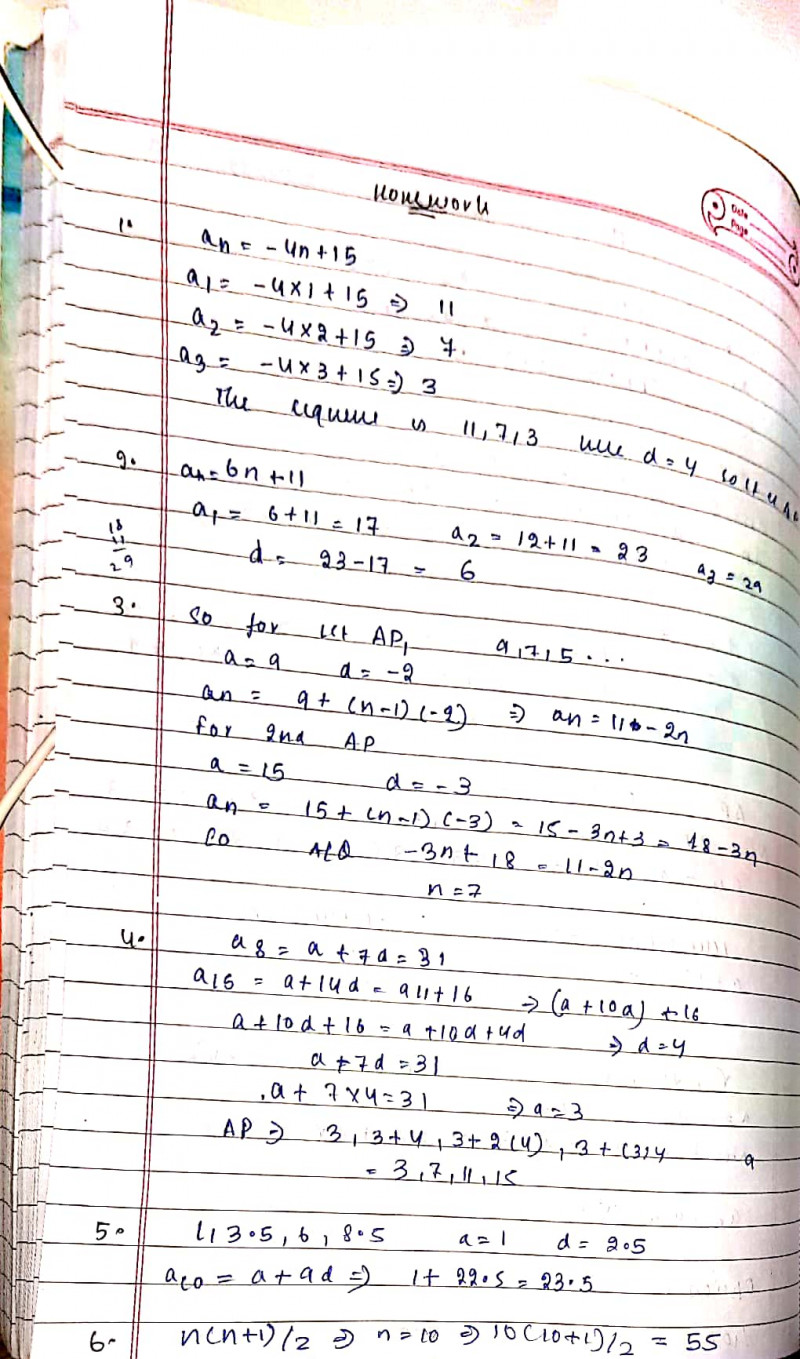 Homework
Date
Page
1. an = -4n+15
a1 = -4×1+15 ⇒ 11
a2 = -4×2+15 ⇒ 7.
a3 = -4×3+15 ⇒ 3
The is 11,7,3 d=4
2. an=6n+11
a1 = 6+11 = 17 a2 = 12+11 = 23 a3 = 29
18
11
29
d = 23-17 = 6
3. so for 1st AP, 9,7,5...
a=9 d=-2
an = 9+(n-1)(-2) ⇒ an = 11-2n
for 2nd AP
a=15 d=-3
an = 15+(n-1)(-3) = 15-3n+3 = 18-3n
so -3n+18 = 11-2n
n=7
4. a8 = a+7d = 31
a15 = a+14d = a11+16 ⇒ (a+10d)+16
a+10d+16 = a+10d+4d ⇒ d=4
a+7d=31
a+7×4=31 ⇒ a=3
AP ⇒ 3, 3+4, 3+2(4), 3+(3)4 a
= 3,7,11,15
5. 1,3.5,6,8.5 a=1 d=2.5
a10 = a+9d ⇒ 1+22.5=23.5
6. n(n+1)/2 ⇒ n=10 ⇒ 10(10+1)/2 = 55